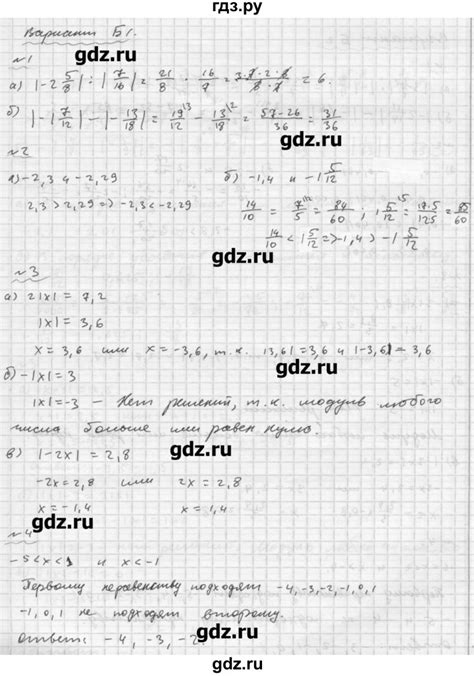 гдз.ру
Вариант Б1.
gdz.ru
№1
а) |-2 5/8| : |7/16| = 21/8 · 16/7 = 3·7·2·8/8·7 = 6.
б) |-1 7/12| - |-13/18| = 19/12 - 13/18 = 57-26/36 = 31/36
gdz.ru
№2
а) -2,3 и -2,29
2,3 > 2,29 => -2,3 < -2,29
б) -1,4 и -1 5/12
14/10 = 7/5 = 84/60 ; 1 5/12 = 17·5/12·5 = 85/60
14/10 < 1 5/12 => -1,4 > -1 5/12
gdz.ru
№3
а) 2|x| = 7,2
|x| = 3,6
x = 3,6 или x = -3,6, т.к. |3,6| = 3,6 и |-3,6| = 3,6
gdz.ru
б) -|x| = 3
|x| = -3 — Нет решений, т.к. модуль любого
числа больше или равен нулю.
в) |-2x| = 2,8
gdz.ru
-2x = 2,8 или 2x = 2,8
x = -1,4 x = 1,4
gdz.ru
№4
-5 < x < и x < -1
Первому неравенству подходят -4, -3, -2, -1, 0, 1
-1, 0, 1 не подходят второму.
gdz.ru
Ответ: -4, -3, -2.
gdz.ru